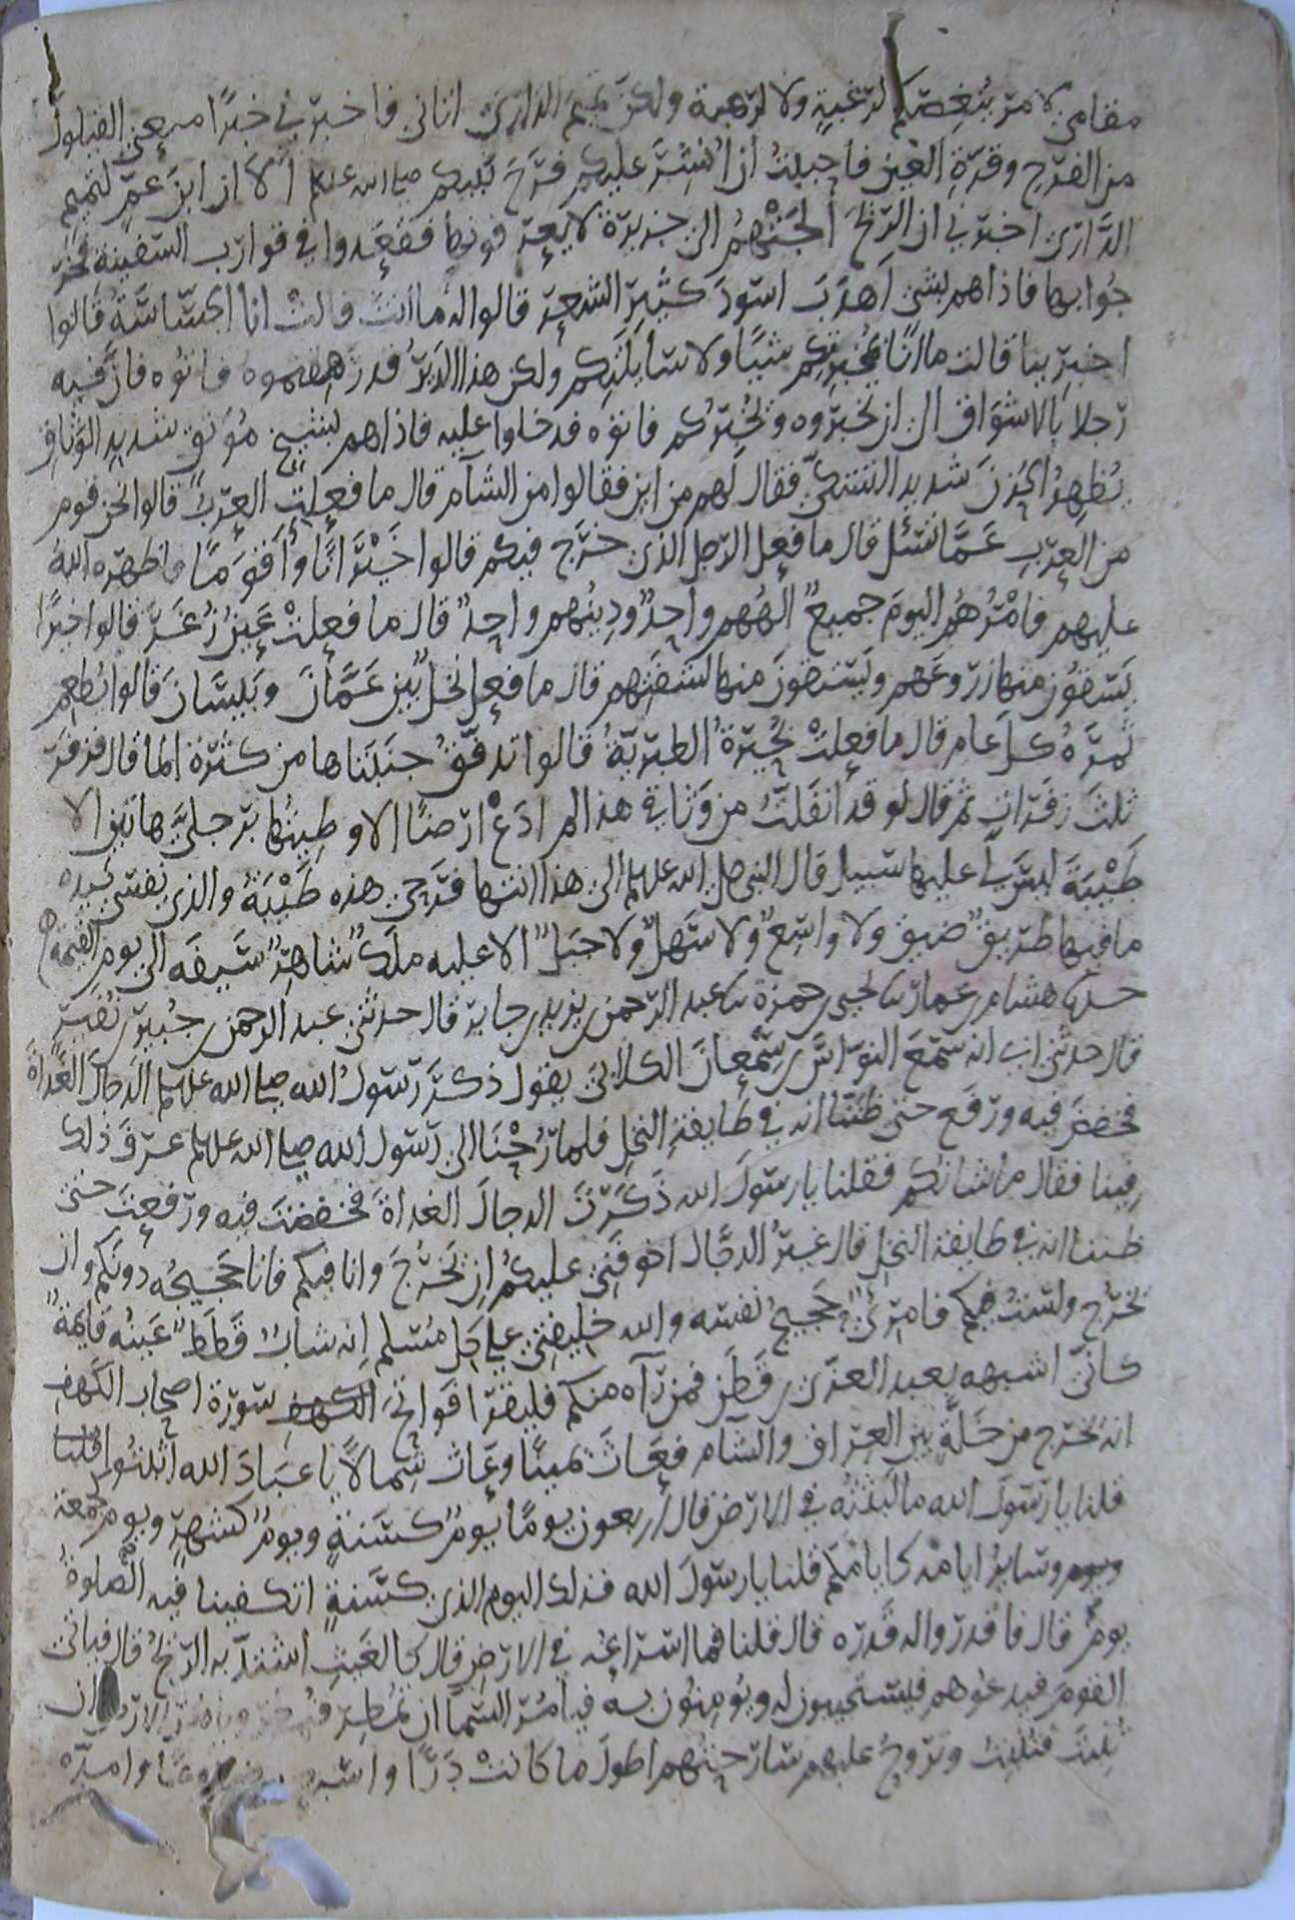 مقامي لامر ينغصكم لرغبة ولا لرهبة ولكن تميم الداري اتاني فاخبرني خبرًا منعني القيلولة
من الفرح وقرة العين فاحببت ان انشر عليكم فرح نبيكم صلى الله عليه وسلم ألا ان ابن عم لتميم
الداري اخبرني ان الريح الجئتهم الى جزيرة لا يعرفونها فقعدوا في قوارب السفينة فخر
جوا بها فاذاهم بشي اهدب اسود كثير الشعر قالوا له ما انت قالت انا الجساسة قالوا
اخبرينا قالت ما انا بمخبرتكم شيئًا ولا سايلتكم ولكن هذا الدير قد رهقتموه فاتوه فان فيه
رجلا بالاشواق الى ان تخبروه ويخبركم فاتوه فدخلوا عليه فاذاهم بشيخ موثق شديد الوثاق
يظهر الحزن شديد التشكي فقال لهم من اين فقالوا من الشام قال ما فعلت العرب قالوا نحن قوم
من العرب عما تسئل قال ما فعل الرجل الذي خرج فيكم قالوا خيرًا ناوأ قومًا فاظهره الله
عليهم فامرهم اليوم جميع الههم واحد ودينهم واحد قال ما فعلت عين زغر قالوا خيرًا
يسقون منها زروعهم ويستقون منها لسقيهم قال ما فعل نخل بين عمان وبيسان قالوا يطعم
ثمره كل عام قال ما فعلت بحيرة الطبرية قالوا تدفق جنبتاها من كثرة الما قال فزفر
ثلث زفرات ثم قال لو قد انفلت من وثاقي هذا لم ادع ارضًا الا وطيتها برجلي هاتين الا
طيبة ليس لي عليها سبيل قال النبي صلى الله عليه وسلم الى هذا انتها فرحي هذه طيبة والذي نفسي بيده
ما فيها طريق ضيق ولا واسع ولا سهل ولا جبل الا عليه ملك شاهر سيفه الى يوم القيمة
حدثنا هشام بن عمار ثنا يحيى بن حمزة ثنا عبد الرحمن بن يزيد بن جابر قال حدثني عبد الرحمن بن جبير بن نفير
قال حدثني ابي انه سمع النواس بن سمعان الكلابي يقول ذكر رسول الله صلى الله عليه وسلم الدجال الغداة
فخفض فيه ورفع حتى ظننا انه في طايفة النخل فلما رحنا الى رسول الله صلى الله عليه وسلم عرف ذلك
فينا فقال ما شانكم فقلنا يا رسول الله ذكرت الدجال الغداة فخفضت فيه ورفعت حتى
ظننا انه في طايفة النخل قال غير الدجال اخوفني عليكم ان تخرج وانا فيكم فانا حجيجه دونكم وان
تخرج ولست فيكم فامرئ حجيج نفسه والله خليفتي على كل مسلم انه شاب قطط عينه قايمة
كاني اشبهه بعبد العزى بن قطن فمن رآه منكم فليقرا فواتح الكهف سورة اصحاب الكهف
انه تخرج من خلة بين العراق والشام فعاث يمينًا وعاث شمالًا يا عباد الله اثبتوا قلنا
قلنا يا رسول الله ما لبثه في الارض قال اربعون يومًا يوم كسنة ويوم كشهر ويوم كجمعة
ويوم وساير ايامه كايامكم قلنا يا رسول الله فذلك اليوم الذي كسنة اتكفينا فيه الصلوة
يوم قال فاقدروا له قدره قال قلنا فما اسراعه في الارض قال كالغيث اشتد به الريح قال فياتي
القوم فيدعوهم فيستجيبون له ويومنون به فيامر السما ان تمطر فتمطر ويامر الارض ان
تنبت فتنبت وتروح عليهم سارحتهم اطول ما كانت ذرًا واسبـ ضروعًا وامده